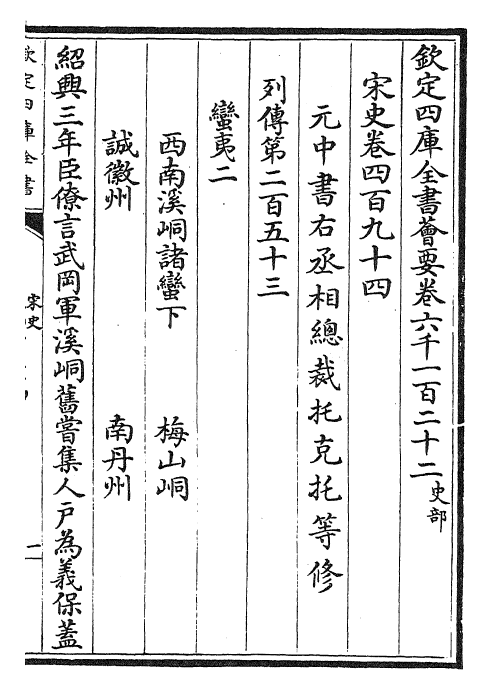 欽定四庫全書薈要卷六千一百二十二 史部
宋史卷四百九十四
元中書右丞相總裁托克托等修
列傳第二百五十三
蠻夷二
西南溪峒諸蠻下 梅山峒
誠徽州 南丹州
紹興三年臣僚言武岡軍溪峒舊嘗集人戶為義保蓋
欽定四庫全書
宋史